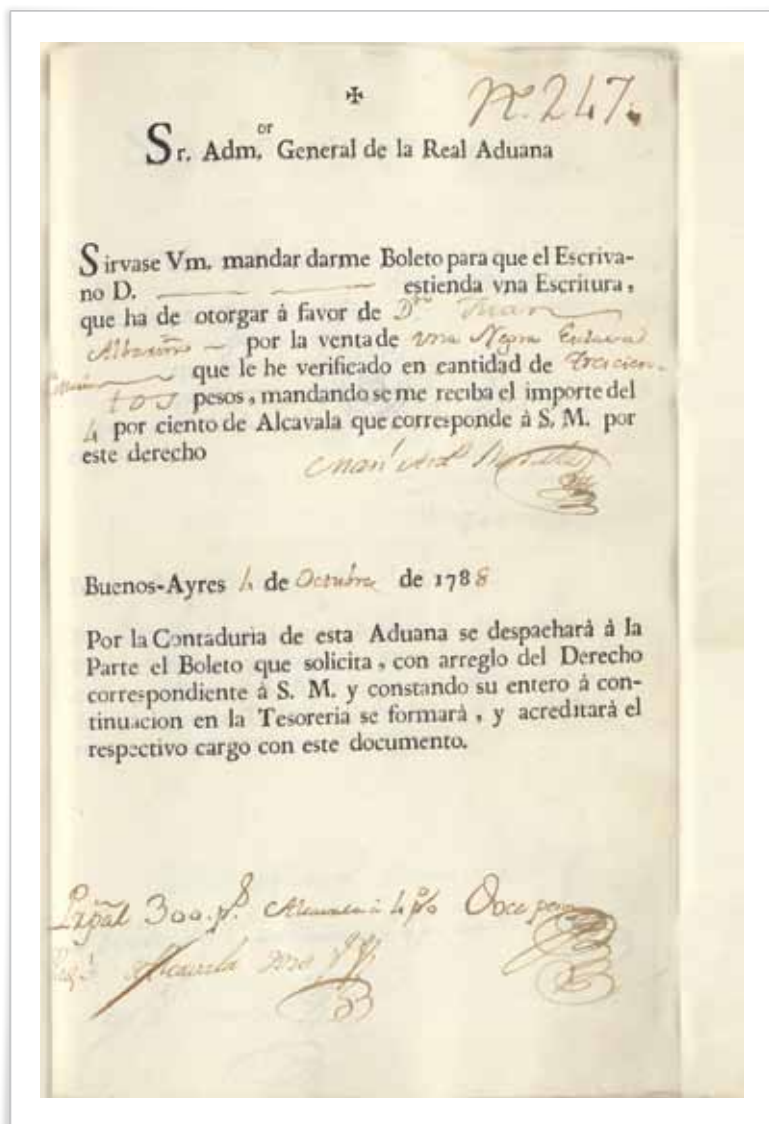 Nº. 247.
✠
Sr. Adm.or General de la Real Aduana
Sirvase Vm. mandar darme Boleto para que el Escriva-
no D. estienda vna Escritura,
que ha de otorgar à favor de Dn Juan
por la venta de vna Negra Esclava
que le he verificado en cantidad de Trescien-
tos pesos, mandando se me reciba el importe del
4 por ciento de Alcavala que corresponde à S. M. por
este derecho
Buenos-Ayres 4 de Octubre de 1788
Por la Contaduria de esta Aduana se despachará à la
Parte el Boleto que solicita, con arreglo del Derecho
correspondiente à S. M. y constando su entero à con-
tinuacion en la Tesoreria se formará, y acreditará el
respectivo cargo con este documento.
300 ps. 4 p%o Doce pesos